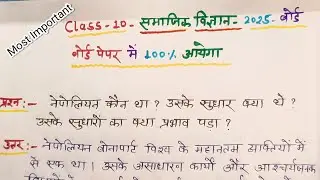 Most Important
Class-10- समाजिक विज्ञान- 2025- बोर्ड
बोर्ड पेपर में 100% आयेगा
प्रश्न:- नेपोलियन कौन था? उसके सुधार क्या थे?
उसके सुधारों का क्या प्रभाव पड़ा?
उत्तर:- नेपोलियन बोनापार्ट विश्व के महानतम व्यक्तियों में
से एक था। उसके असाधारण कार्यों और आश्चर्यजनक